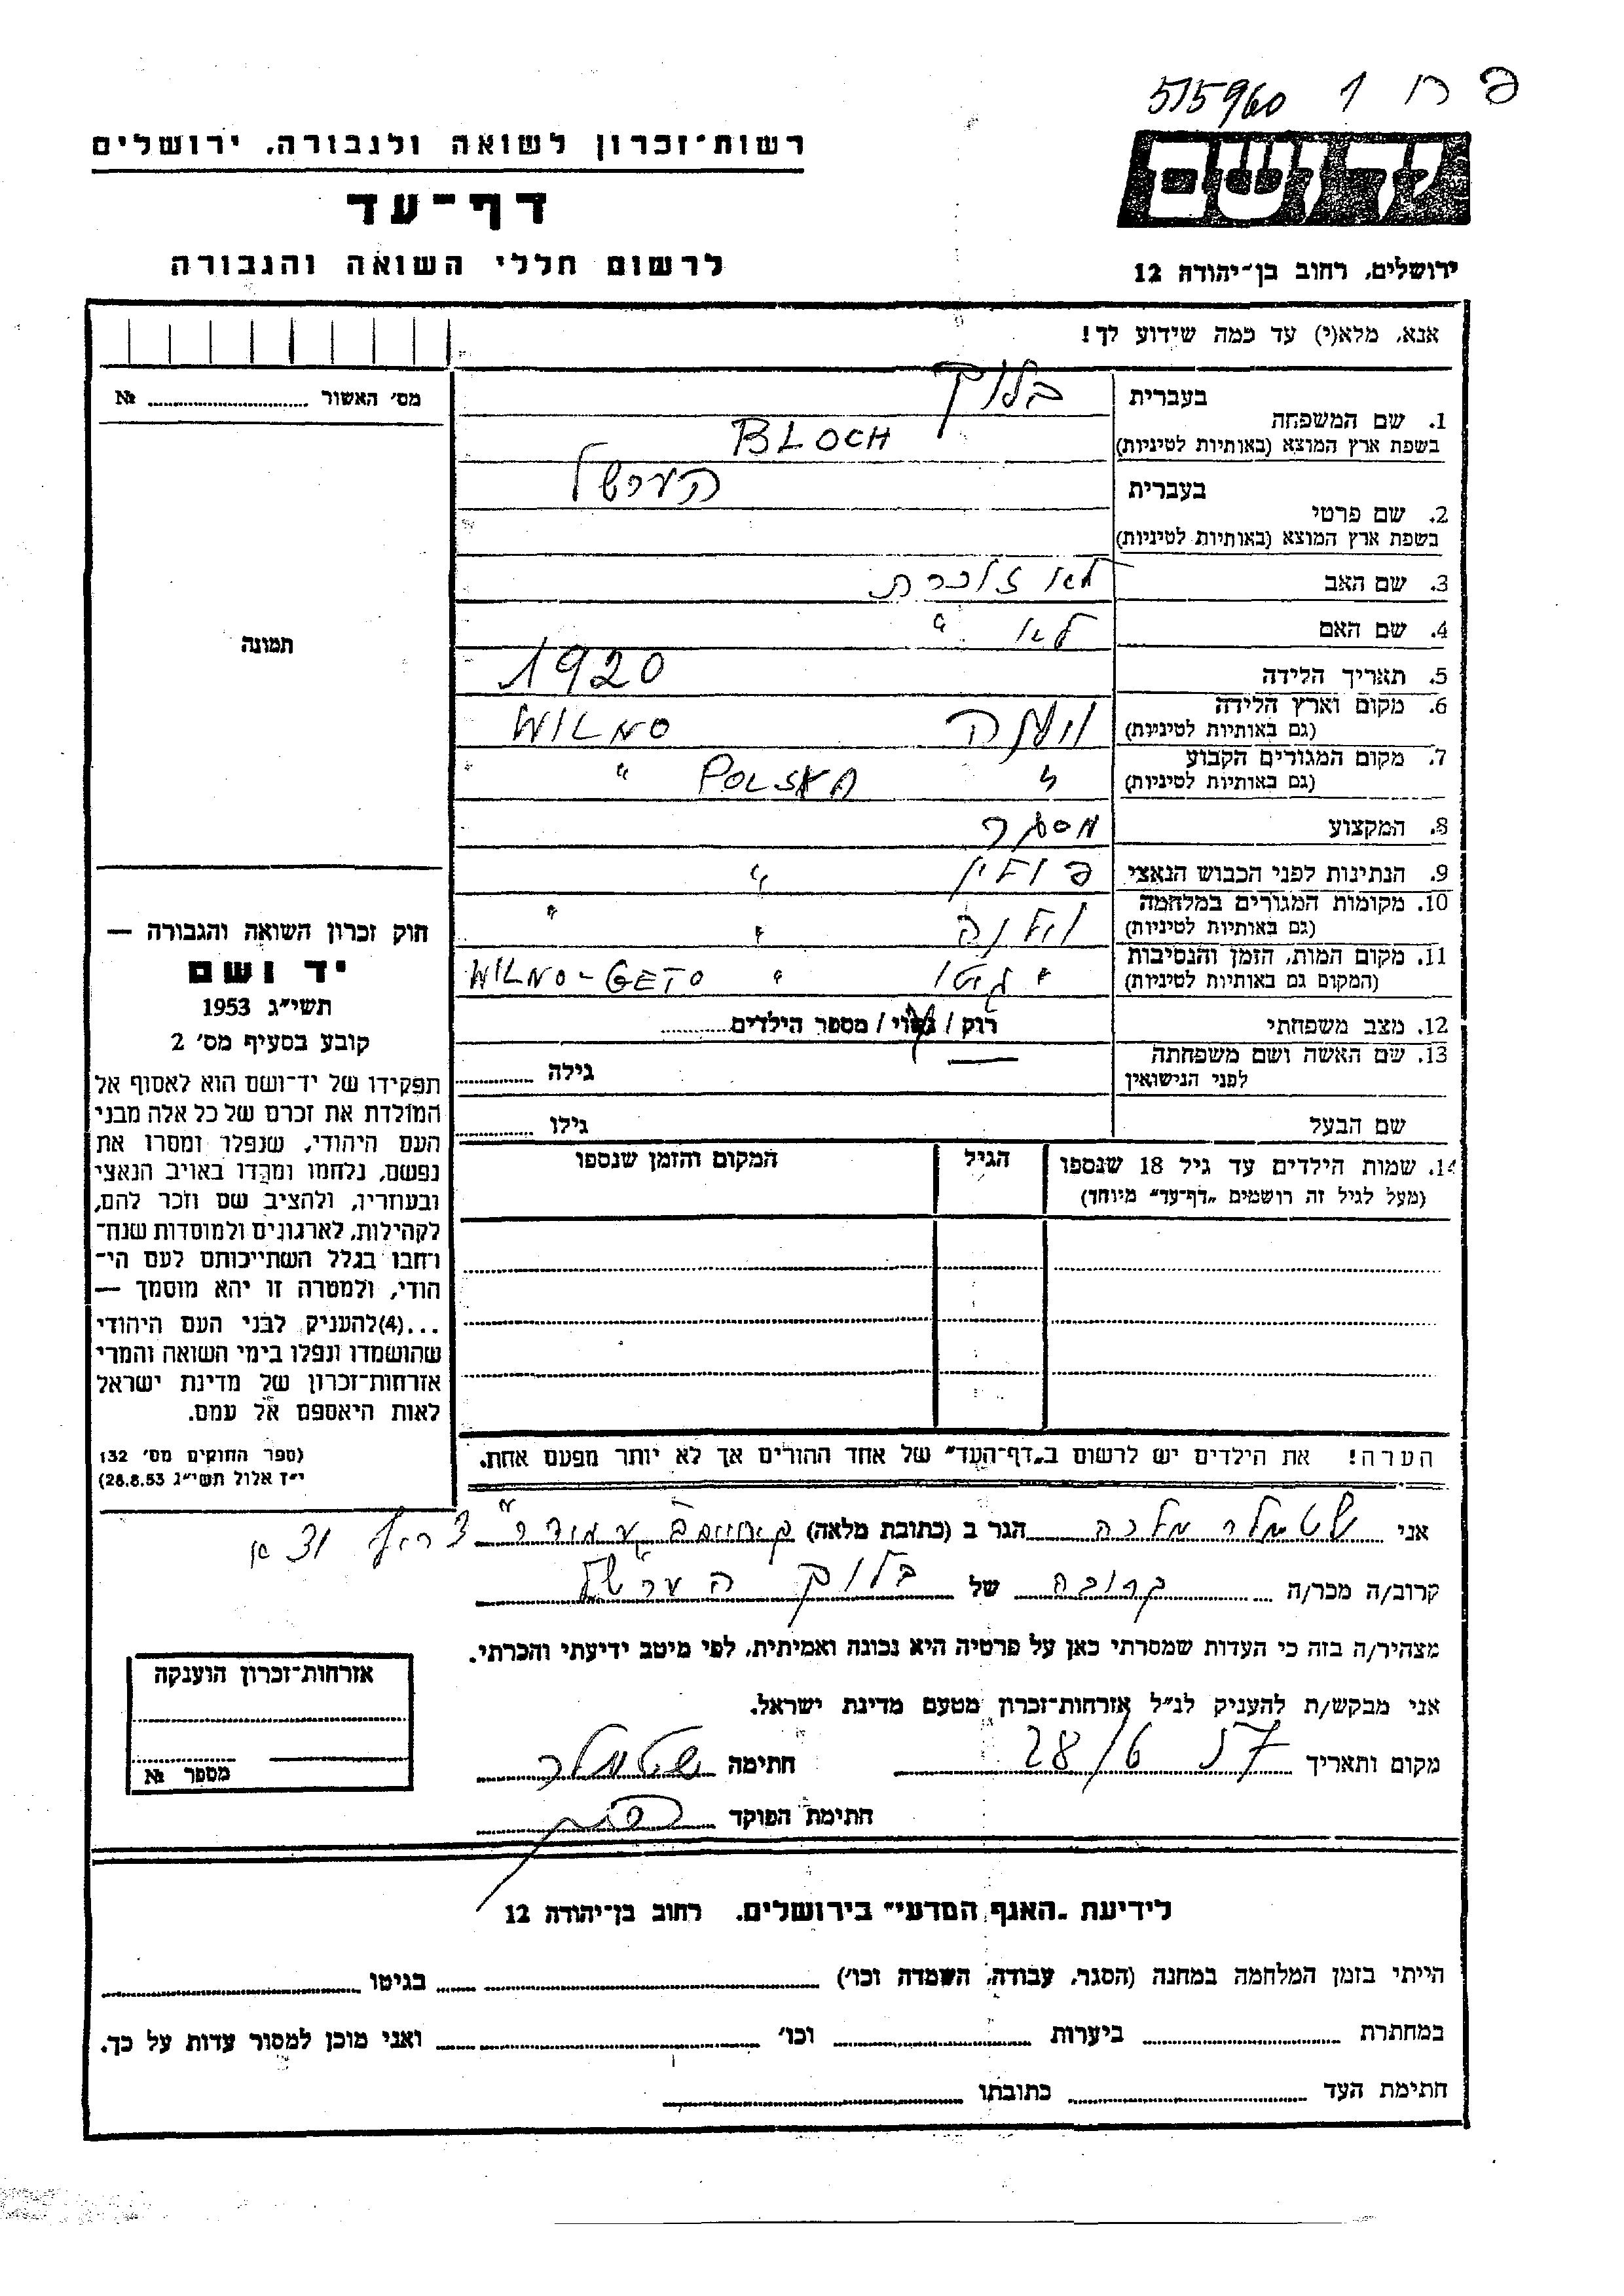 515960 1
רשות־זכרון לשואה ולגבורה, ירושלים
יד ושם
דף־עד
לרשום חללי השואה והגבורה
ירושלים, רחוב בן־יהודה 12
אנא, מלא(י) עד כמה שידוע לך!
מס׳ האשור № 
1. שם המשפחה
בעברית בלוך
בשפת ארץ המוצא (באותיות לטיניות) BLOCH
2. שם פרטי
בעברית הערשל
בשפת ארץ המוצא (באותיות לטיניות)
3. שם האב לא זוכרת
4. שם האם לא "
5. תאריך הלידה 1920
6. מקום וארץ הלידה
(גם באותיות לטיניות) ווילנה WILNO
7. מקום המגורים הקבוע
(גם באותיות לטיניות) " POLSKA "
8. המקצוע מסגר
9. הנתינות לפני הכבוש הנאצי פולין "
10. מקומות המגורים במלחמה
(גם באותיות לטיניות) וילנה " "
11. מקום המות, הזמן והנסיבות
(המקום גם באותיות לטיניות) " גיטו " WILNO-GETO
12. מצב משפחתי רווק / נשוי / מספר הילדים
13. שם האשה ושם משפחתה
לפני הנישואין גילה
שם הבעל גילו
14. שמות הילדים עד גיל 18 שנספו
(מעל לגיל זה רושמים „דף־עד" מיוחד)
הגיל
המקום והזמן שנספו
תמונה
חוק זכרון השואה והגבורה —
יד ושם
תשי״ג 1953
קובע בסעיף מס׳ 2
תפקידו של יד־ושם הוא לאסוף אל
המולדת את זכרם של כל אלה מבני
העם היהודי, שנפלו ומסרו את
נפשם, נלחמו ומרדו באויב הנאצי
ובעוזריו, ולהציב שם וזכר להם,
לקהילות, לארגונים ולמוסדות שנח־
רחבו בגלל השתייכותם לעם הי־
הודי, ולמטרה זו יהא מוסמך —
...(4)להעניק לבני העם היהודי
שהושמדו ונפלו בימי השואה והמרי
אזרחות־זכרון של מדינת ישראל
לאות היאספם אל עמם.
(ספר החוקים מס׳ 132
י״ז אלול תשי״ג 28.8.53)
הערה! את הילדים יש לרשום ב„דף־העד" של אחד ההורים אך לא יותר מפעם אחת.
אני שטמלר מלכה הגר ב (כתובת מלאה) צריף
קרוב/ה מכר/ה קרובה של בלוך הערשל
מצהיר/ה בזה כי העדות שמסרתי כאן על פרטיה היא נכונה ואמיתית, לפי מיטב ידיעתי והכרתי.
אני מבקש/ת להעניק לנ״ל אזרחות־זכרון מטעם מדינת ישראל.
מקום ותאריך 28/6 57 חתימה שטמלר
חתימת הפוקד
אזרחות־זכרון הוענקה
מספר №
לידיעת „האגף המדעי" בירושלים, רחוב בן־יהודה 12
הייתי בזמן המלחמה במחנה (הסגר, עבודה, השמדה וכו׳) בגיטו
במחתרת ביערות וכו׳ ואני מוכן למסור עדות על כך.
חתימת העד כתובתו